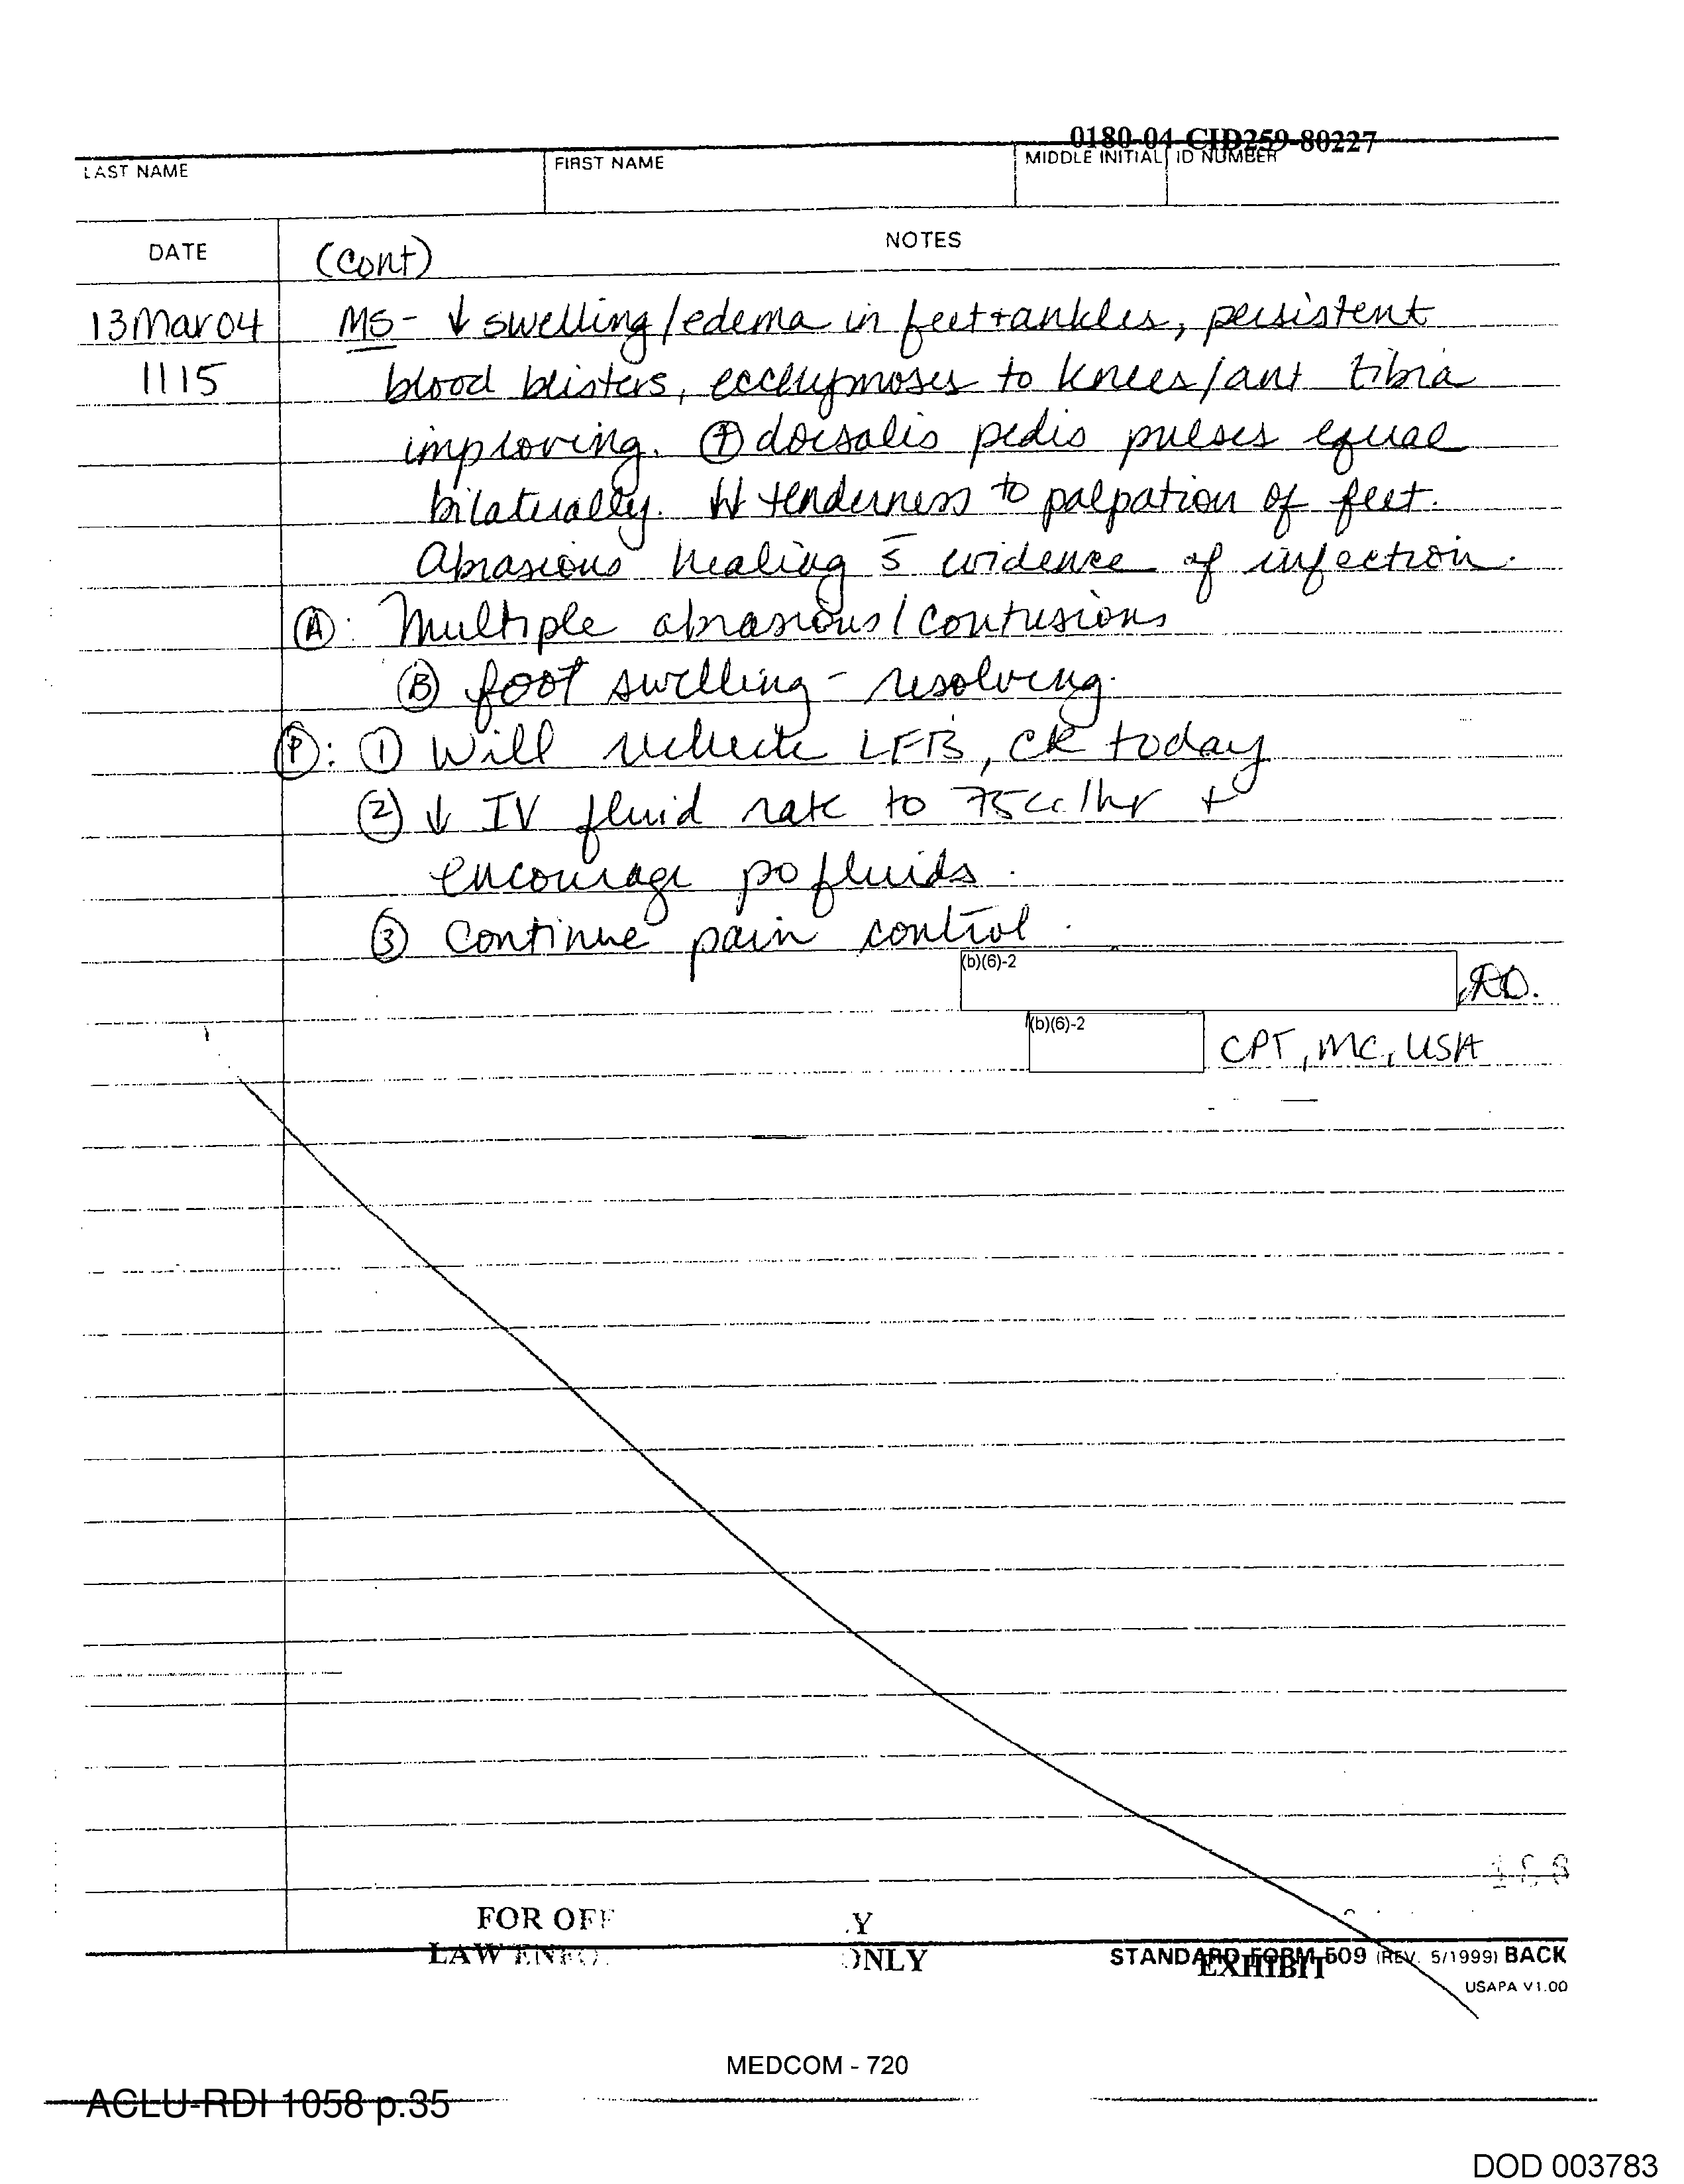 0180-04-CID259-80227
LAST NAME FIRST NAME MIDDLE INITIAL ID NUMBER
DATE NOTES
(cont)
13 Mar 04 MS - ↓ swelling/edema in feet + ankles, persistent
1115 blood blisters, ecchymoses to knees/ant tibia
improving. ⊕ dorsalis pedis pulses equal
bilaterally. ↓↓ tenderness to palpation of feet.
Abrasions healing s̄ evidence of infection.
Ⓐ: Multiple abrasions/contusions
Ⓑ foot swelling - resolving.
Ⓟ: ① Will recheck LFTs, CK today
② ↓ IV fluid rate to 75cc/hr +
encourage po fluids.
③ Continue pain control.
(b)(6)-2
(b)(6)-2 CPT, MC, USA
FOR OFF Y
LAW ENFO ONLY
STANDARD FORM 509 (REV. 5/1999) BACK
EXHIBIT
USAPA V1.00
MEDCOM - 720
ACLU-RDI 1058 p.35
DOD 003783